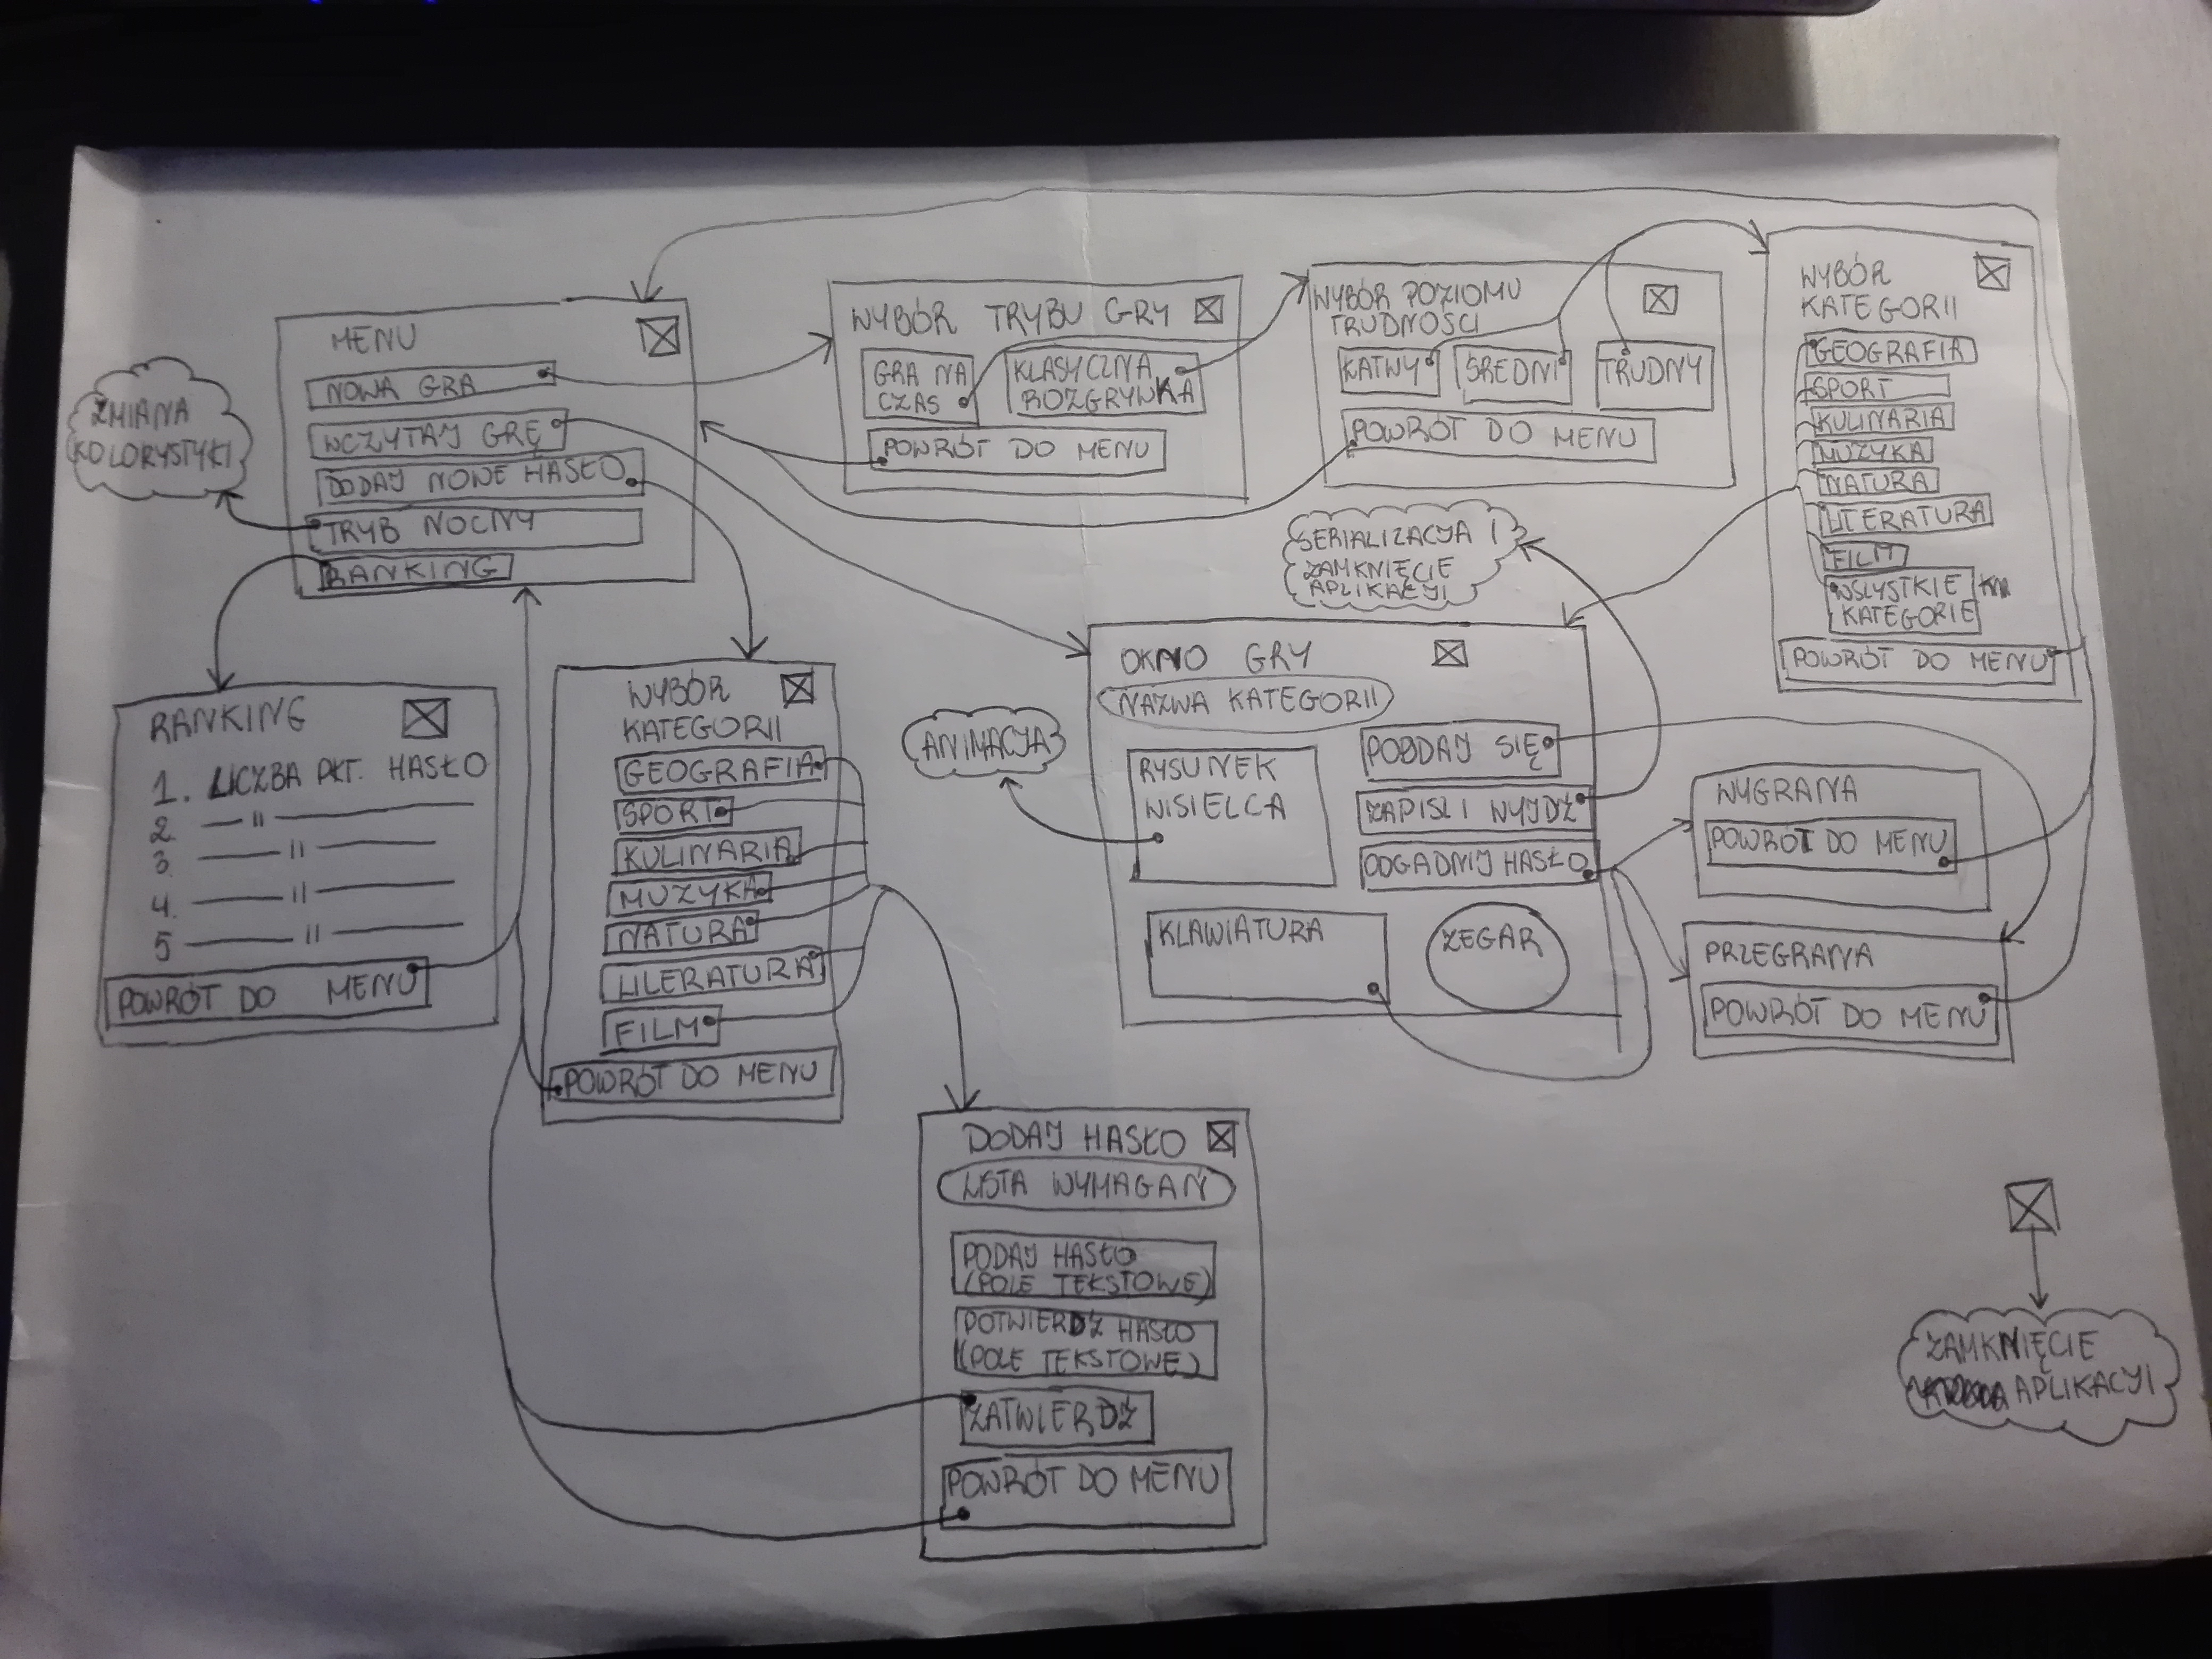 MENU
NOWA GRA
WCZYTAJ GRĘ
DODAJ NOWE HASŁO
TRYB NOCNY
RANKING
ZMIANA
KOLORYSTYKI
WYBÓR TRYBU GRY
GRA NA
CZAS
KLASYCZNA
ROZGRYWKA
POWRÓT DO MENU
WYBÓR POZIOMU
TRUDNOŚCI
ŁATWY
ŚREDNI
TRUDNY
POWRÓT DO MENU
WYBÓR
KATEGORII
GEOGRAFIA
SPORT
KULINARIA
MUZYKA
NATURA
LITERATURA
FILM
WSZYSTKIE
KATEGORIE
POWRÓT DO MENU
SERIALIZACJA I
ZAMKNIĘCIE
APLIKACJI
RANKING
1. LICZBA PKT. HASŁO
2. — " —
3. — " —
4. — " —
5 — " —
POWRÓT DO MENU
WYBÓR
KATEGORII
GEOGRAFIA
SPORT
KULINARIA
MUZYKA
NATURA
LITERATURA
FILM
POWRÓT DO MENU
ANIMACJA
OKNO GRY
NAZWA KATEGORII
RYSUNEK
WISIELCA
PODDAJ SIĘ
ZAPISZ I WYJDŹ
ODGADNIJ HASŁO
KLAWIATURA
ZEGAR
WYGRANA
POWRÓT DO MENU
PRZEGRANA
POWRÓT DO MENU
DODAJ HASŁO
LISTA WYMAGAŃ
PODAJ HASŁO
(POLE TEKSTOWE)
POTWIERDŹ HASŁO
(POLE TEKSTOWE)
ZATWIERDŹ
POWRÓT DO MENU
ZAMKNIĘCIE
APLIKACJI